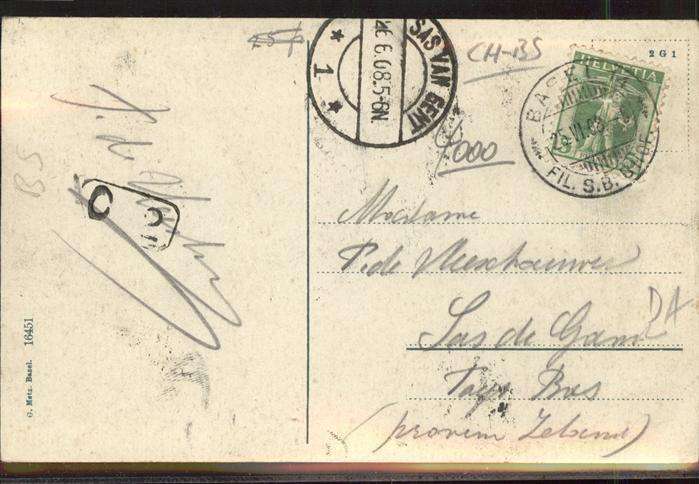 CH-BS
2 G 1
HELVETIA
SAS VAN GENT
6.08.5-6N
1
BASEL
FIL. S.B.
4000
BS
Madame
P. de Vleeschouwer
Sas de Gand
DA
Pays Bas
(provem Zeland)
16451
G. Metz. Basel.